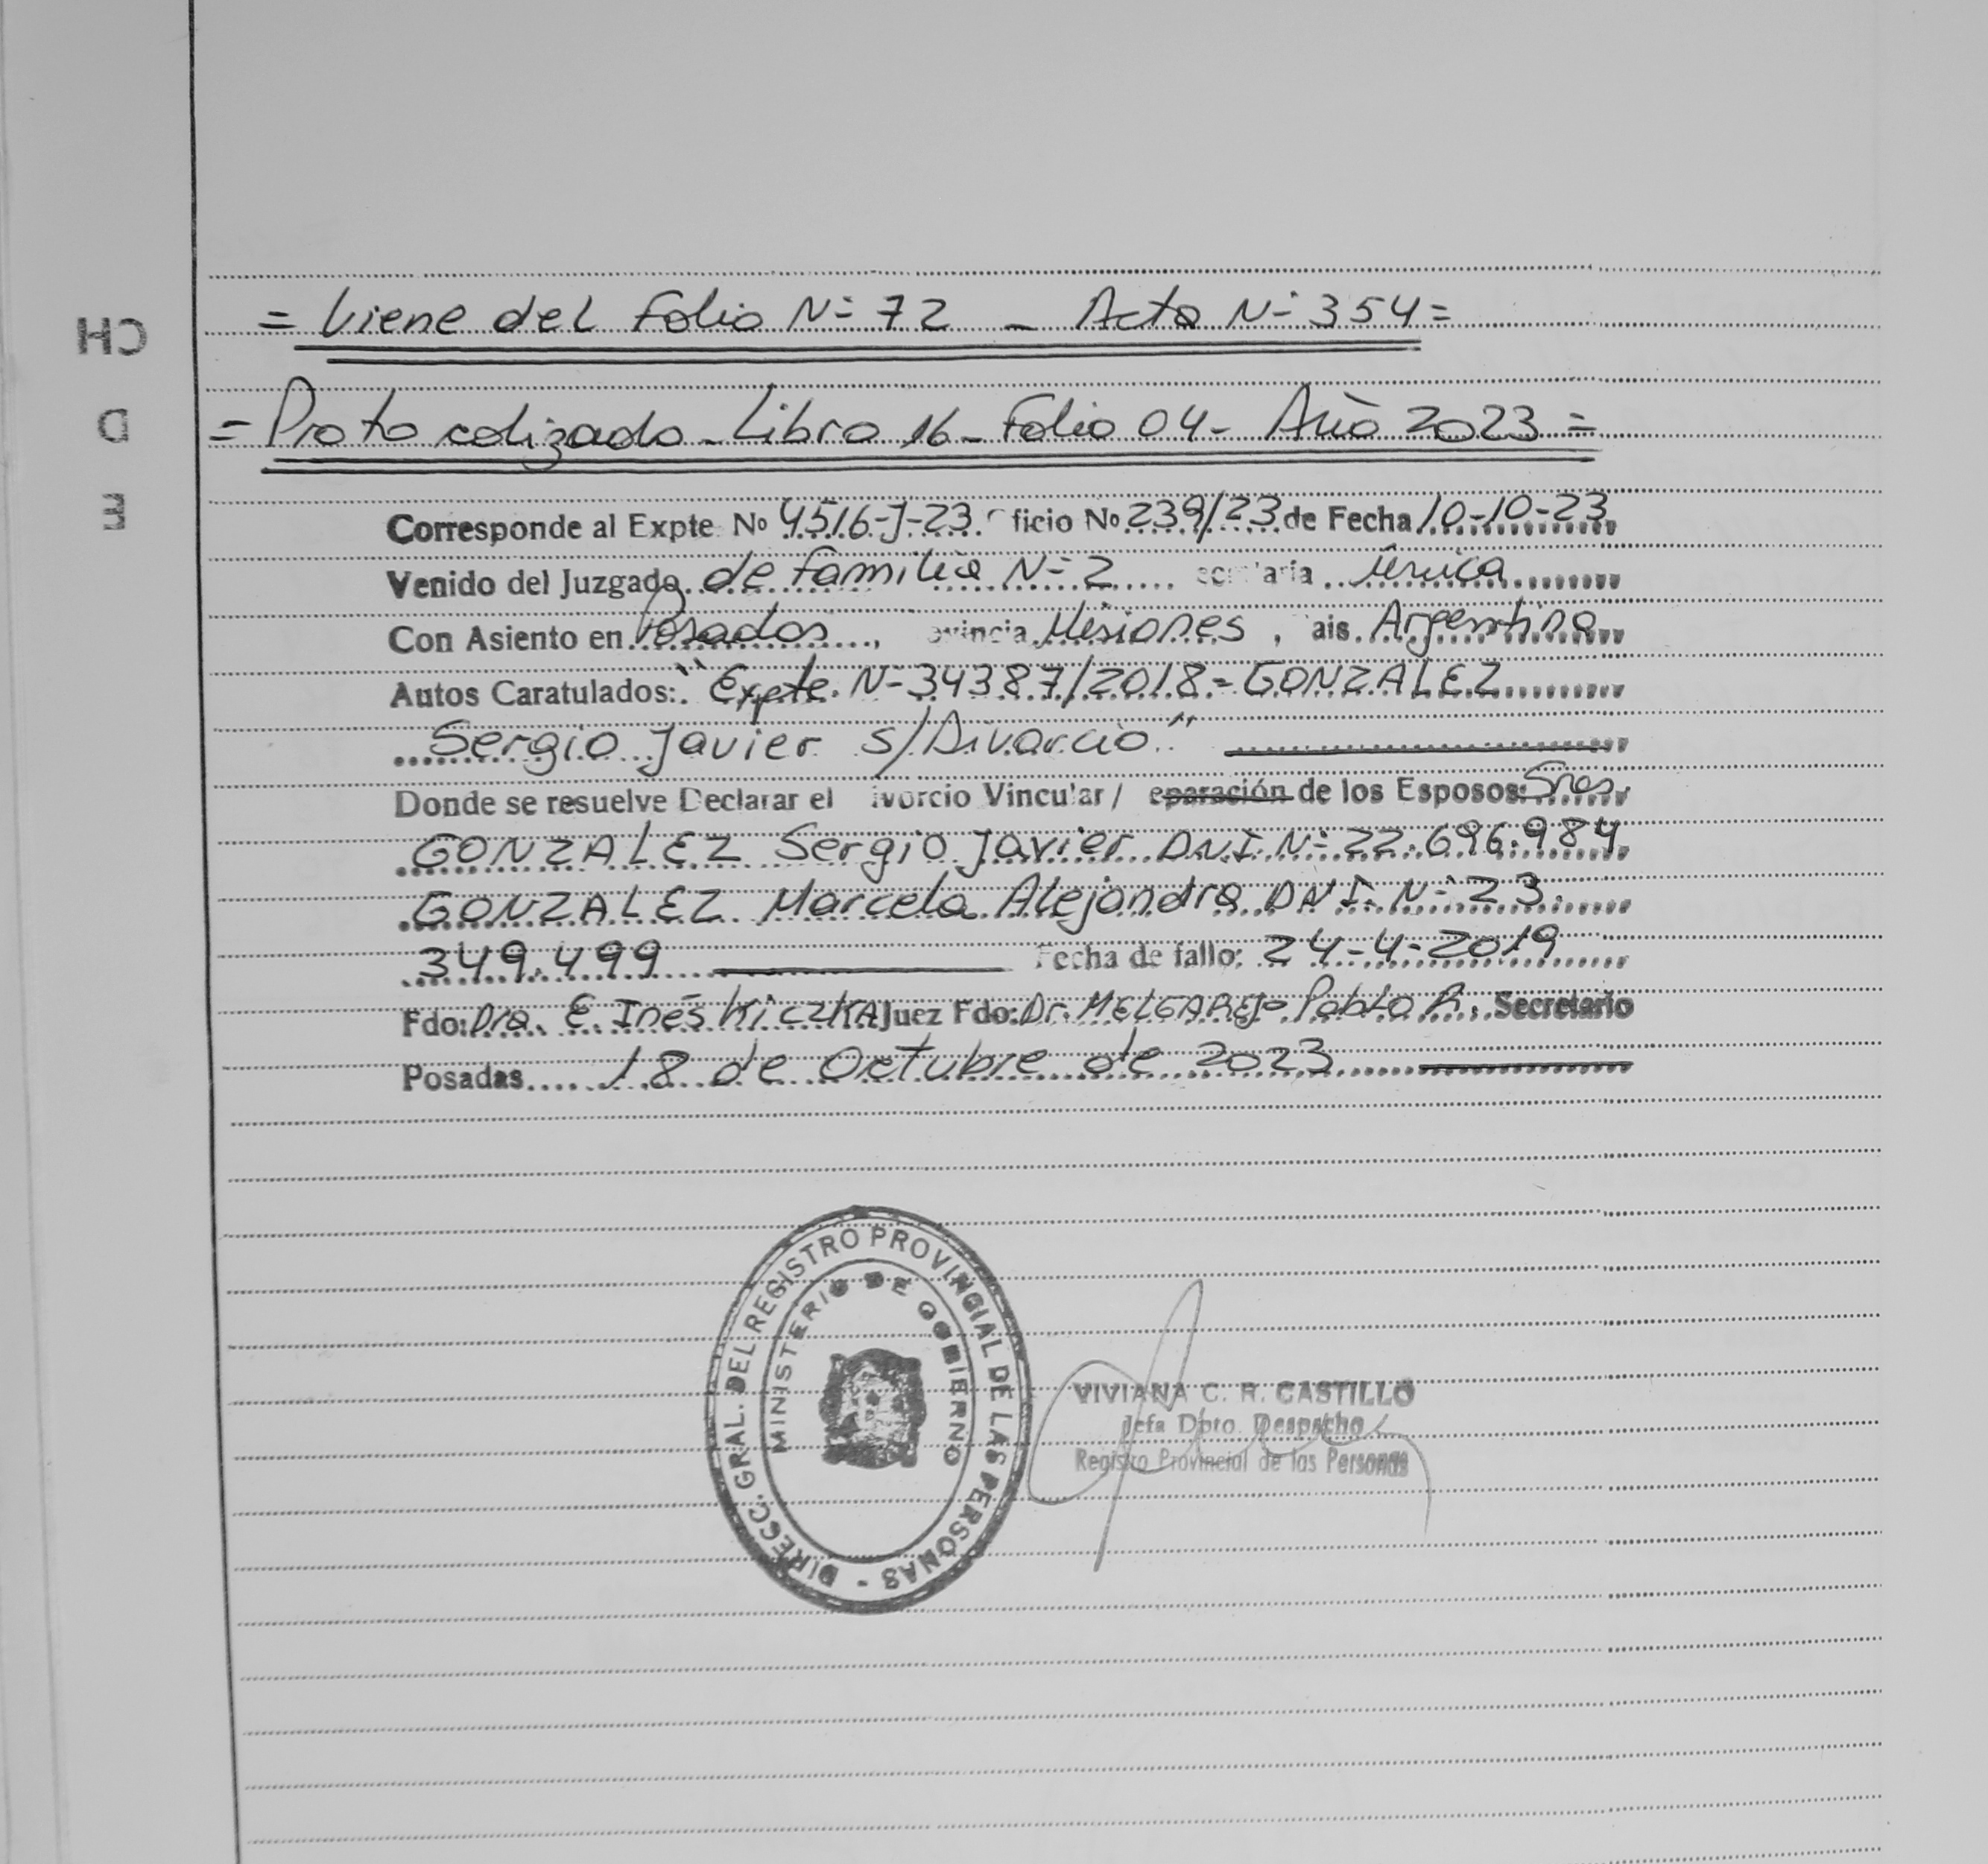 = Viene del Folio Nº 72 - Acta Nº 354 =
= Protocolizado - Libro 16 - Folio 04 - Año 2023 =
Corresponde al Expte Nº 4516-J-23. ficio Nº 239/23 de Fecha 10-10-23
Venido del Juzgado de familia Nº 2 ecretaría única
Con Asiento en Posadas, ovincia Misiones, ais Argentina
Autos Caratulados: "Expte. Nº 34387/2018 - GONZALEZ
Sergio Javier s/Divorcio"
Donde se resuelve Declarar el ivorcio Vincular / eparación de los Esposos: Sres
GONZALEZ Sergio Javier DNI. Nº 22.696.984
GONZALEZ Marcela Alejandra DNI. Nº 23.
349.499 Fecha de fallo: 24-4-2019
Fdo: Dra. E. Inés KiczKA Juez Fdo: Dr. MELGAREJo Pablo R. Secretario
Posadas 18 de Octubre de 2023
DIRECC. GRAL. DEL REGISTRO PROVINCIAL DE LAS PERSONAS -
MINISTERIO DE GOBIERNO
VIVIANA C. R. CASTILLO
Jefa Dpto. Despacho
Registro Provincial de las Personas
CH
D
E